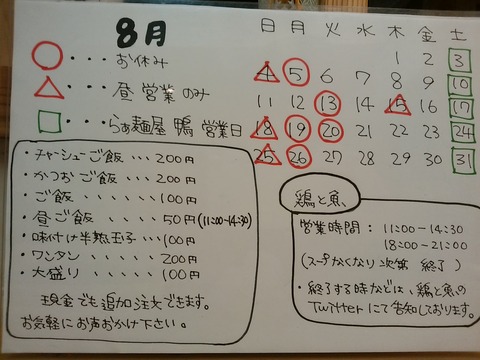 8月
○・・・お休み
△・・・昼営業のみ
□・・・らぁ麺屋 鴨 営業日
日 月 火 水 木 金 土
1 2 3
4 5 6 7 8 9 10
11 12 13 14 15 16 17
18 19 20 21 22 23 24
25 26 27 28 29 30 31
・チャーシューご飯・・・200円
・かつおご飯・・・200円
・ご飯・・・・・・100円
・昼ご飯・・・・・50円(11:00-14:30)
・味付け半熟玉子・・・100円
・ワンタン・・・・・200円
・大盛り・・・・・100円
現金でも追加注文できます。
お気軽にお声おかけ下さい。
鶏と魚
営業時間: 11:00-14:30
18:00-21:00
(スープなくなり次第 終了)
・終了する時などは、鶏と魚の
Twitterにて告知しております。